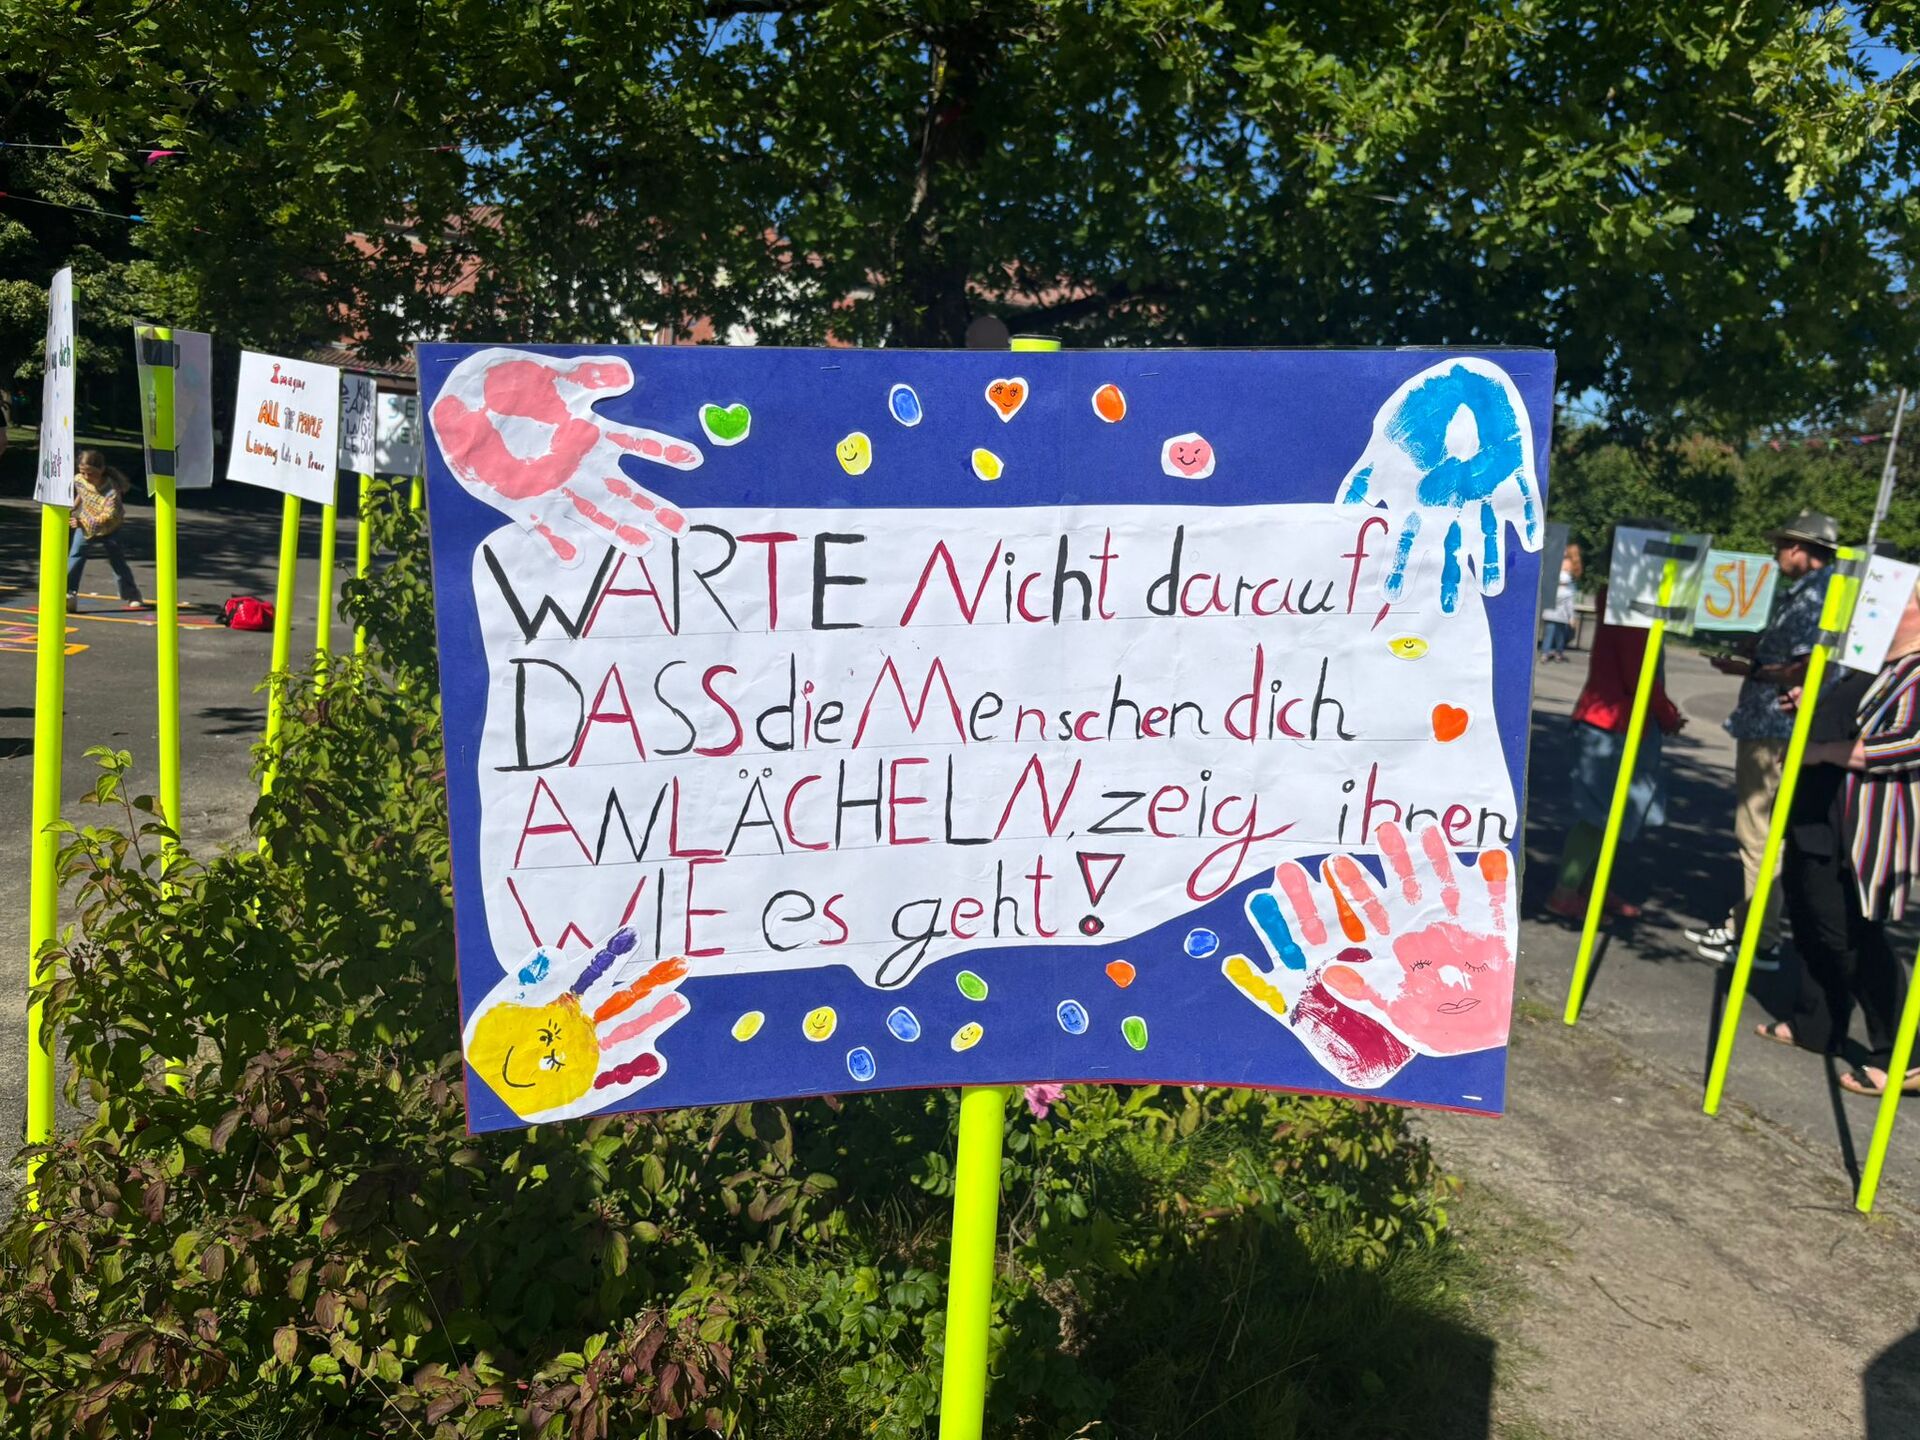 WARTE Nicht darauf,
DASS die Menschen dich
ANLÄCHELN, zeig ihren
WIE es geht!
Imagine
ALL THE PEOPLE
Living Life in Peace
SV